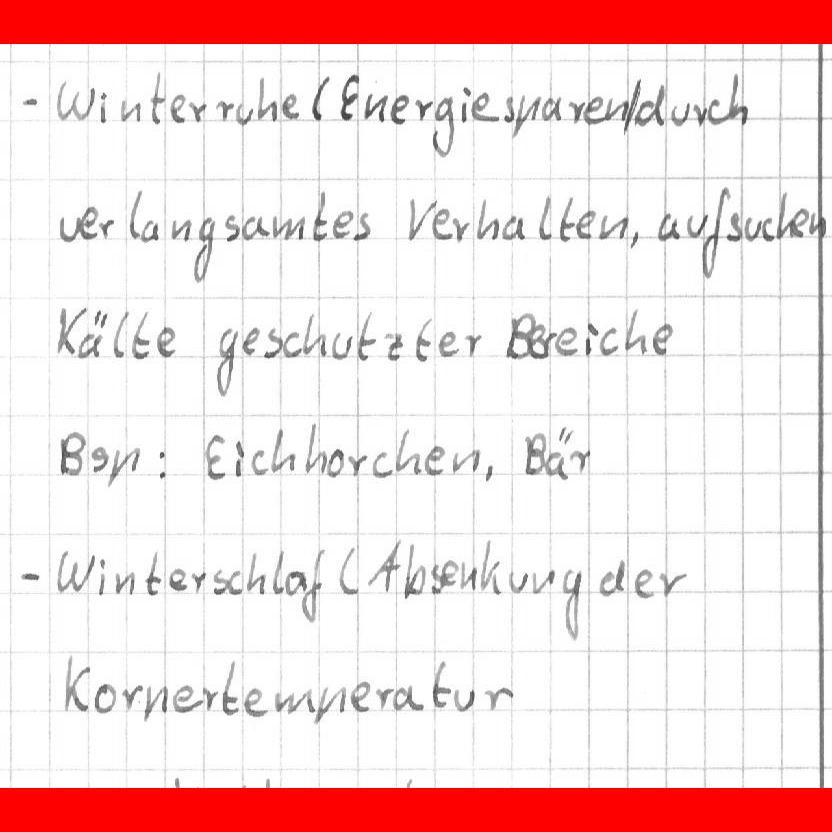 - Winterruhe (Energiesparen/durch
verlangsamtes Verhalten, aufsuchen
Kälte geschutzter Bereiche
Bsp: Eichhorchen, Bär
- Winterschlaf (Absenkung der
Korpertemperatur